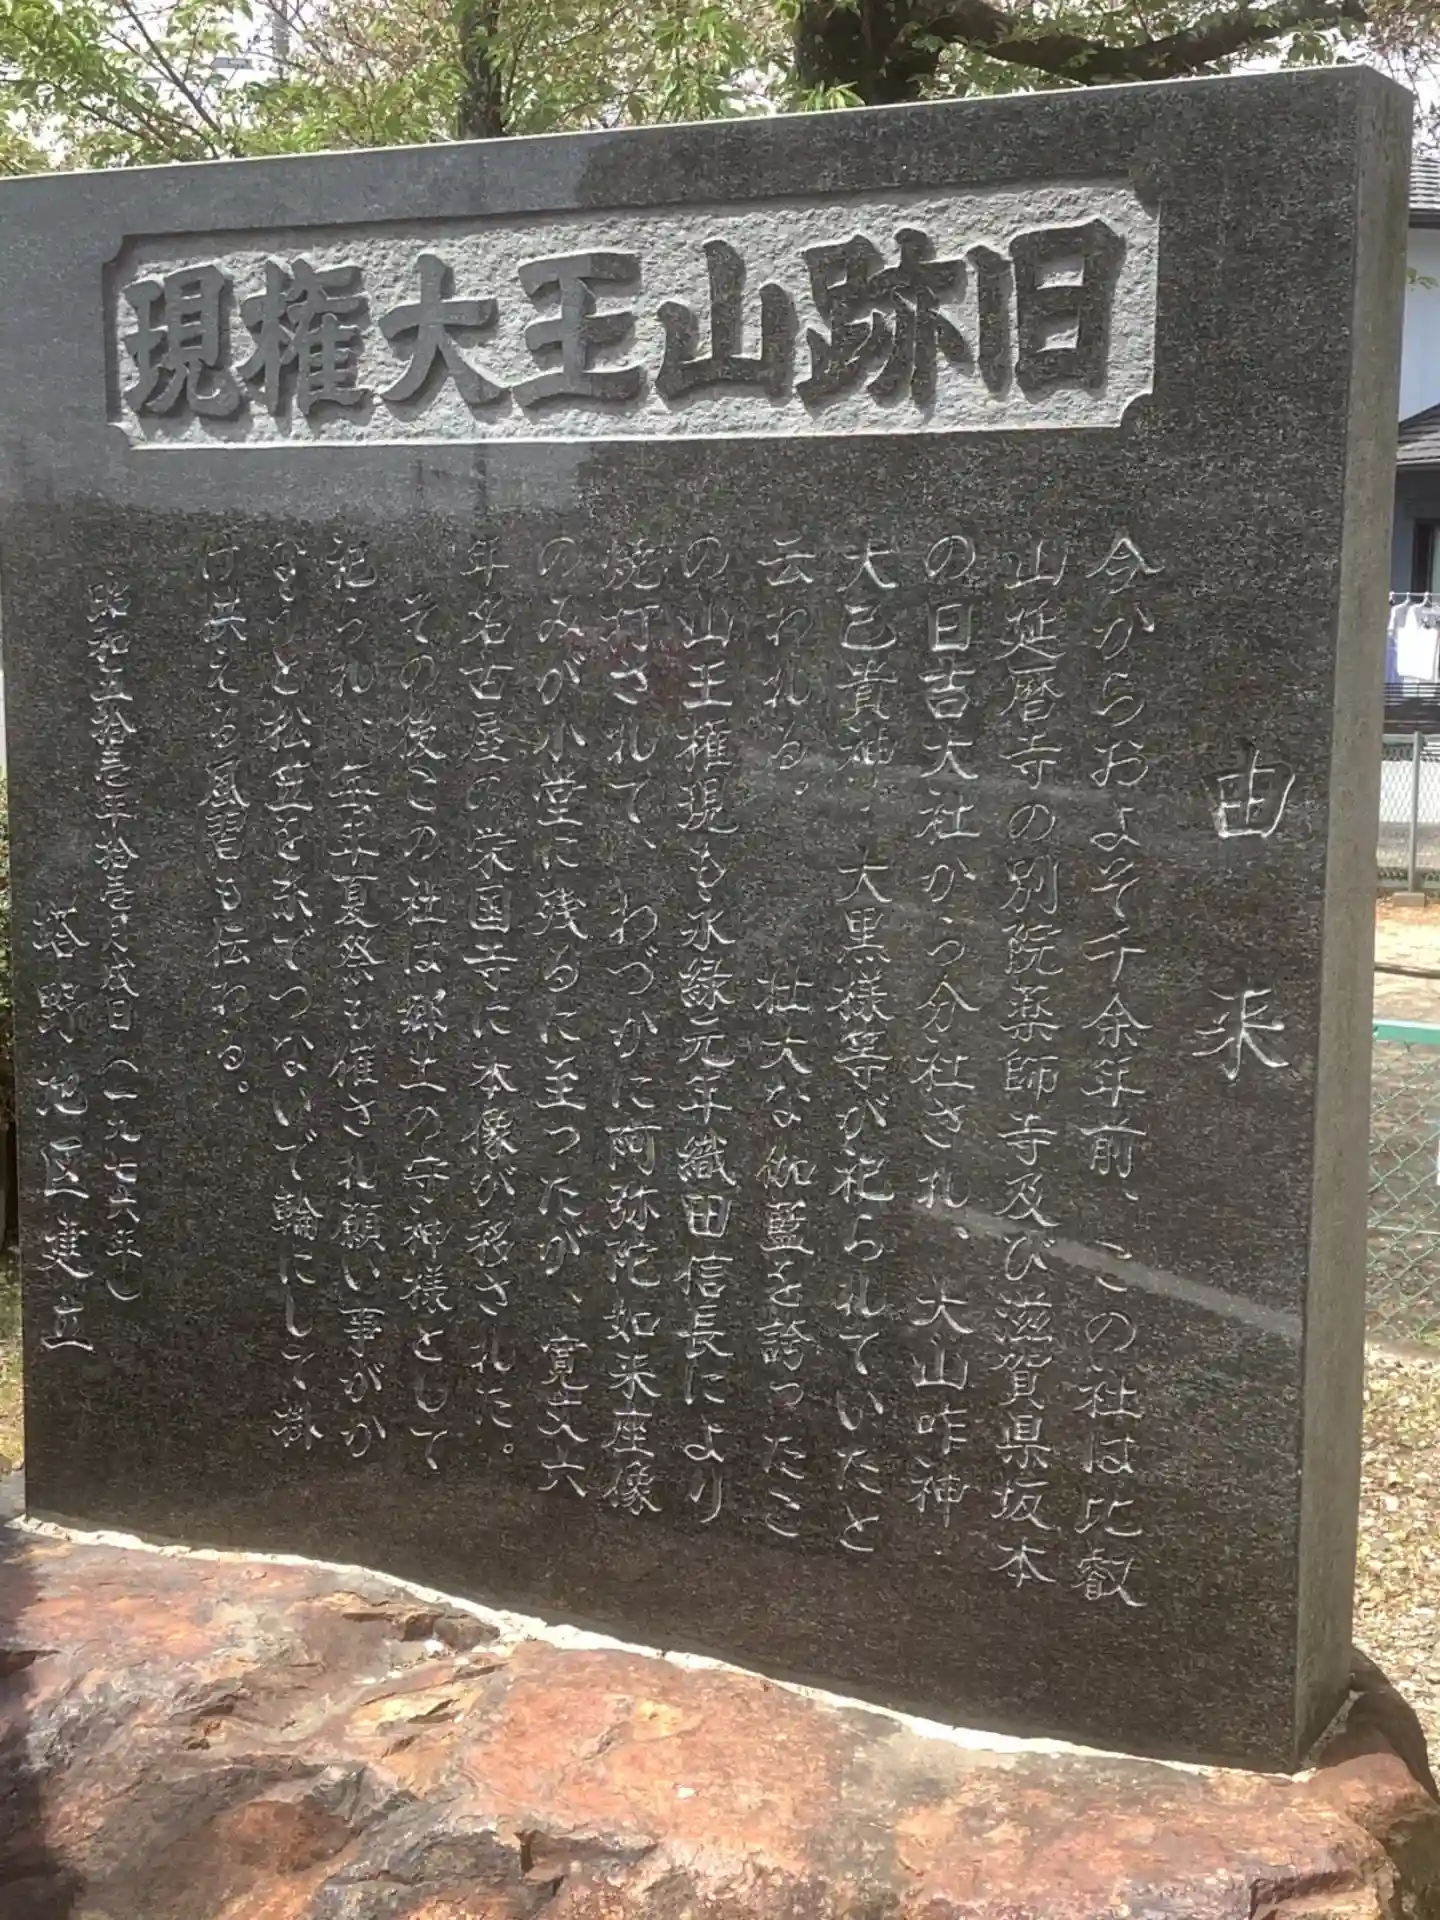 旧跡山王大権現
由来
今からおよそ千余年前、この社は比叡
山延暦寺の別院薬師寺及び滋賀県坂本
の日吉大社かっ分社され、大山咋神・
大己貴神・大黒様等が祀られていたと
云われる。壮大な伽藍を誇ったこ
の山王権現も永緑元年織田信長により
焼打されて、わづかに阿弥陀如来座像
のみが小堂に残るに至ったが、寛文六
年名古屋の栄国寺に本像が移された。
その後この社は郷土の守神様として
祀られ、毎年夏祭も催され願い事がか
なうと松笠を糸でつないで輪にして掛
け供える風習も伝わる。
昭和五拾壱年拾壱月成日（一九七六年）
塔野地区建立